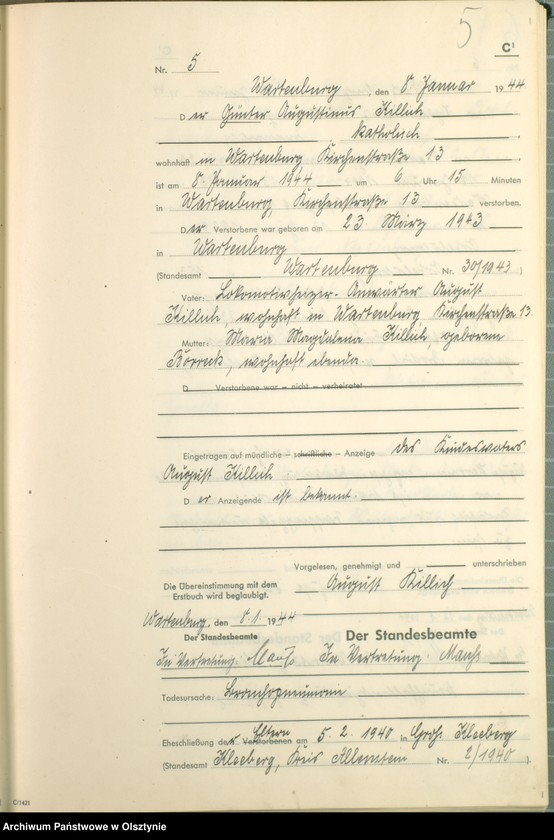 5
C¹
Nr. 5
Wartenburg, den 8. Januar 1944
Der Günter Augustinus Killich
katholisch
wohnhaft in Wartenburg Kirchenstraße 13
ist am 8. Januar 1944 um 6 Uhr 15 Minuten
in Wartenburg, Kirchenstraße 13 verstorben.
Der Verstorbene war geboren am 23. März 1943
in Wartenburg
(Standesamt Wartenburg Nr. 30/1943)
Vater: Lokomotivheizer-Anwärter August
Killich, wohnhaft in Wartenburg Kirchenstraße 13.
Mutter: Maria Magdalena Killich, geborene
wohnhaft ebenda.
D Verstorbene war – nicht – verheiratet
Eingetragen auf mündliche – schriftliche – Anzeige des Kindesvaters
August Killich
Der Anzeigende ist bekannt.
Vorgelesen, genehmigt und unterschrieben
Die Übereinstimmung mit dem
Erstbuch wird beglaubigt.
August Killich
Wartenburg, den 8.1. 1944
Der Standesbeamte
Der Standesbeamte
In Vertretung:
In Vertretung.
Todesursache: Bronchopneumonie
Eheschließung der Eltern Verstorbenen am 5. 2. 1940 in Groß Kleeberg
(Standesamt Kleeberg, Kreis Allenstein Nr. 2/1940)
C/1421
Archiwum Państwowe w Olsztynie